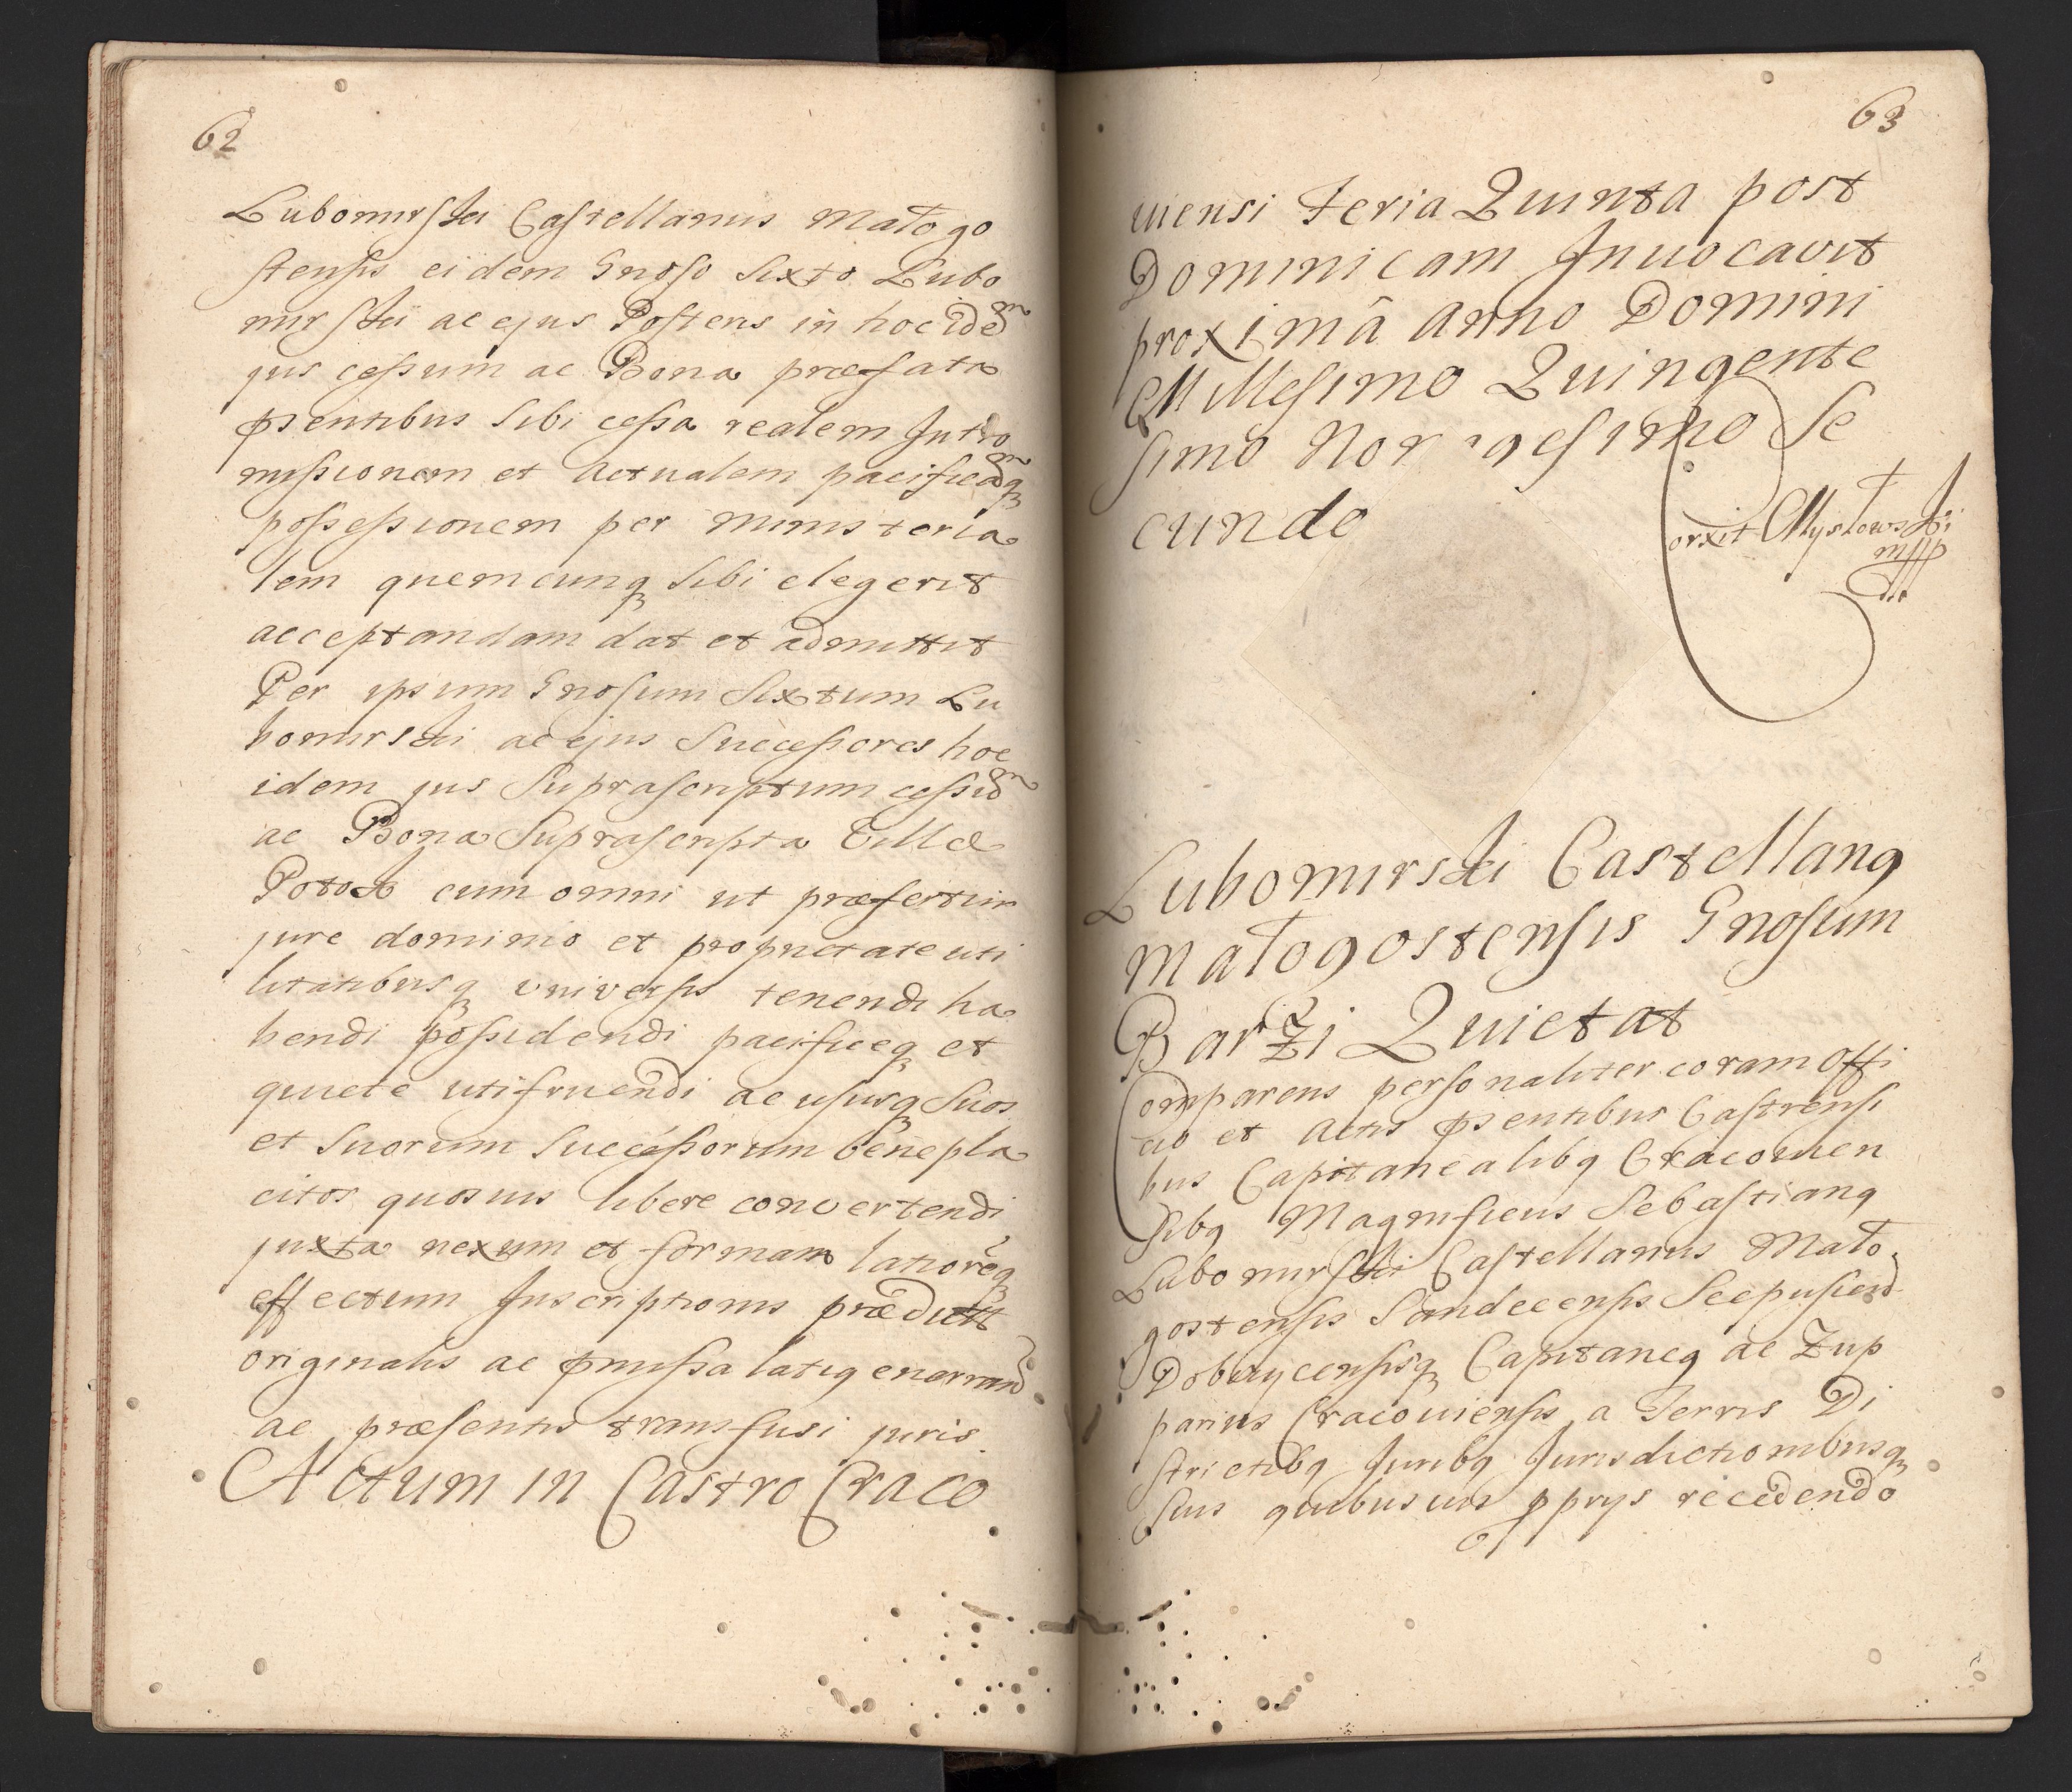 62
Lubomirski Castellanus Małogo
stensis eidem Gnoso Sixto Lubo
mirskii ac ejus Posteris in hoc idem
jus cessum ac Bona præfata
pſentibus Sibi cessa realem Intro
missionem et actualem pacificamq3
possessionem per Ministeria
lem quemcunq3 Sibi elegerit
acceptandam dat et admittit
Per ipsum Gnosum Sixtum Lu
bomirski ac ejus Successores hoc
idem jus Suprascriptum cessum
ac Bona Suprascripta Villæ
Potok cum omni ut præfertur
jure dominio et proprietate uti
litatibusq3 vniversis tenendi ha
bendi possidendi pacificeq3 et
quiete utifruendi ac ususq3 Suos
et Suorum Successorum benepla
citos quosuis libere convertendi
juxta nexum et formam latioremq3
effectum Inscriptionis prædictæ
originalis ac pmissa latiq enarrand
ac præsentis transfusi juris
Actum in Castro Craco
63
uiensi Feria Quinta post
Dominicam Inuocavit
proximâ anno Domini
Millesimo Quingente
simo Nonagesimo Se
cundo
orxit Mysłowski
mpp
Lubomirski Castellanq
Małogostensis Gnosum
Barzi Quietat
Comparens personaliter coram Offi
cio et Actis pſentibus Castrensi
bus Capitanealibq Cracouien
sibq Magnificus Sebastianq
Lubomirski Castellanus Mało
gostensis Sandecensis Scepusiens
Dobczycensisq3 Capitaneq ac Zup
parius Cracouiensis a Terris Di
strictibq Juribq Jurisdictionibusq3
Suis quibusuis pprys recedendo